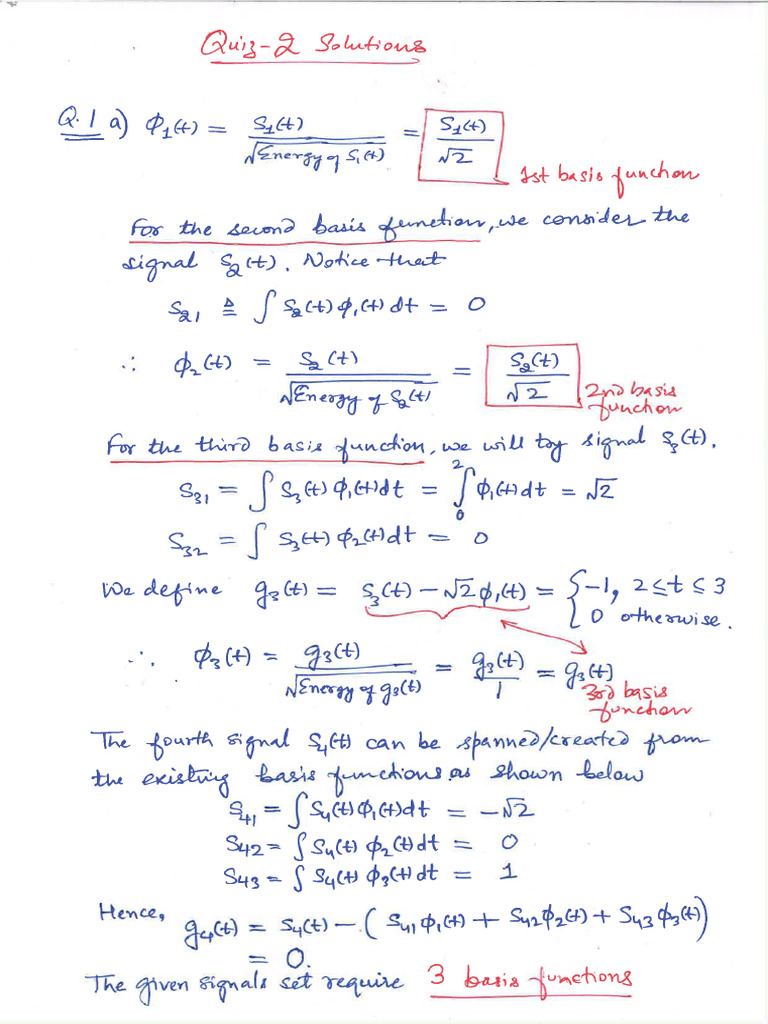 Quiz-2 Solutions
Q.1 a) ϕ1(t) = S1(t) / √Energy of S1(t) = S1(t) / √2
1st basis function
For the second basis function, we consider the
signal S2(t). Notice that
S21 ≜ ∫ S2(t) ϕ1(t) dt = 0
∴ ϕ2(t) = S2(t) / √Energy of S2(t) = S2(t) / √2
2nd basis
function
For the third basis function, we will try signal S3(t).
S31 = ∫ S3(t) ϕ1(t) dt = ∫₀² ϕ1(t) dt = √2
S32 = ∫ S3(t) ϕ2(t) dt = 0
We define g3(t) = S3(t) − √2 ϕ1(t) = { −1, 2 ≤ t ≤ 3
0 otherwise.
∴ ϕ3(t) = g3(t) / √Energy of g3(t) = g3(t) / 1 = g3(t)
3rd basis
function
The fourth signal S4(t) can be spanned/created from
the existing basis functions as shown below
S41 = ∫ S4(t) ϕ1(t) dt = −√2
S42 = ∫ S4(t) ϕ2(t) dt = 0
S43 = ∫ S4(t) ϕ3(t) dt = 1
Hence, g4(t) = S4(t) − ( S41 ϕ1(t) + S42 ϕ2(t) + S43 ϕ3(t) )
= 0.
The given signals set require 3 basis functions